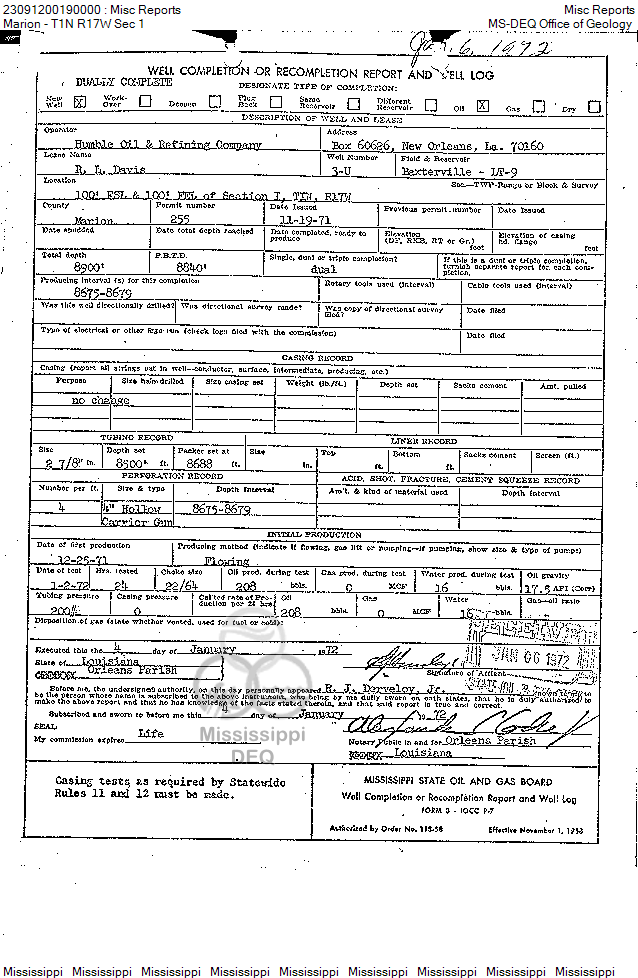 23091200190000 : Misc Reports
Misc Reports
Marion - T1N R17W Sec 1
MS-DEQ Office of Geology
Jan. 6, 1972
WELL COMPLETION OR RECOMPLETION REPORT AND WELL LOG
DUALLY COMPLETE
DESIGNATE TYPE OF COMPLETION:
New Well X Work-Over Deepen Plug Back Same Reservoir Different Reservoir Oil X Gas Dry
DESCRIPTION OF WELL AND LEASE
Operator Address
Humble Oil & Refining Company Box 60626, New Orleans, La. 70160
Lease Name Well Number Field & Reservoir
R. L. Davis 3-U Baxterville - LT-9
Location Sec.-TWP-Range or Block & Survey
100' FSL & 100' FEL of Section 1, T1N, R17W
County Permit number Date Issued Previous permit number Date Issued
Marion 255 11-19-71
Date spudded Date total depth reached Date completed, ready to produce Elevation (DF, RKB, RT or Gr.) feet Elevation of casing hd. flange feet
Total depth P.B.T.D. Single, dual or triple completion? If this is a dual or triple completion, furnish separate report for each completion.
8900' 8840' dual
Producing interval (s) for this completion Rotary tools used (interval) Cable tools used (interval)
8675-8679
Was this well directionally drilled? Was directional survey made? Was copy of directional survey filed? Date filed
Type of electrical or other logs run (check logs filed with the commission) Date filed
CASING RECORD
Casing (report all strings set in well—conductor, surface, intermediate, producing, etc.)
Purpose Size hole drilled Size casing set Weight (lb./ft.) Depth set Sacks cement Amt. pulled
no change
TUBING RECORD LINER RECORD
Size Depth set Packer set at Size Top Bottom Sacks cement Screen (ft.)
2 7/8" in. ft. 8688 ft. in. ft. ft.
PERFORATION RECORD ACID, SHOT, FRACTURE, CEMENT SQUEEZE RECORD
Number per ft. Size & type Depth Interval Am't. & kind of material used Depth Interval
4 Hollow Carrier Gun 8675-8679
INITIAL PRODUCTION
Date of first production Producing method (indicate if flowing, gas lift or pumping—if pumping, show size & type of pump:)
12-25-71 Flowing
Date of test Hrs. tested Choke size Oil prod. during test Gas prod. during test Water prod. during test Oil gravity
1-2-72 24 22/64 208 bbls. 0 MCF 16 bbls. 17.5 API (Corr)
Tubing pressure Casing pressure Cal'ted rate of Production per 24 hrs. Oil Gas Water Gas-oil ratio
200# 0 208 bbls. 0 MCF 16 bbls.
Disposition of gas (state whether vented, used for fuel or sold):
Executed this the 4 day of January, 1972
JAN 06 1972
State of Louisiana
Orleans Parish
Signature of Affiant
Before me, the undersigned authority, on this day personally appeared R. J. Dorveloy, Jr. known to me to
be the person whose name is subscribed to the above instrument, who being by me duly sworn on oath states, that he is duly authorized to
make the above report and that he has knowledge of the facts stated therein, and that said report is true and correct.
Subscribed and sworn to before me this 4 day of January, 1972
SEAL
My commission expires Life
Notary Public in and for Orleans Parish
Louisiana
Mississippi
DEQ
Casing tests as required by Statewide
Rules 11 and 12 must be made.
MISSISSIPPI STATE OIL AND GAS BOARD
Well Completion or Recompletion Report and Well Log
FORM 3 - IOCC P-7
Authorized by Order No. 118-58 Effective November 1, 1958
Mississippi Mississippi Mississippi Mississippi Mississippi Mississippi Mississippi Mississippi Mississippi